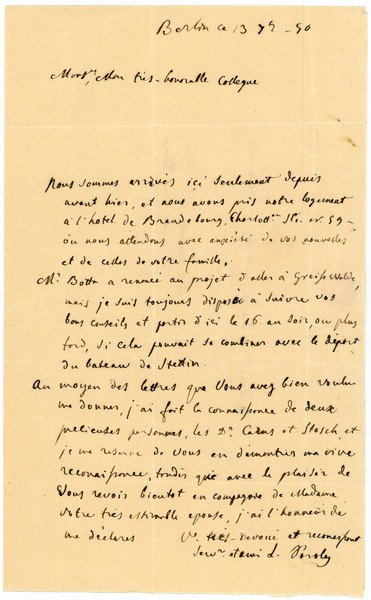 Berlin ce 13 7bre - 50
Monsr, Mon très-honorable Collegue
Nous sommes arrivés ici seulement depuis
avant hier, et nous avons pris notre logement
à l'hotel de Brandebourg, Charlottn Str. nr. 59 -
où nous attendons avec anxiété de vos nouvelles
et de celles de votre famille,
Mr Botta a renoncé au projet d'aller à Greifswalde,
mais je suis toujours disposé à suivre vos
bons conseils et partir d'ici le 16 au soir, ou plus
tard, si cela pouvait se combiner avec le départ
du bateau de Stettin.
Au moyen des lettres que vous avez bien voulu
me donner, j'ai fait la connaissance de deux
precieuses personnes, les Drs Carus et Stosch, et
je me reserve de Vous en demontrer ma vive
reconnaissance, tandis que avec le plaisir de
Vous revoir bientot en compagnie de Madame
votre très estimable epouse, j'ai l'honneur de
me déclarer Ve très-Devoué et reconnaissant
Servr et ami L.